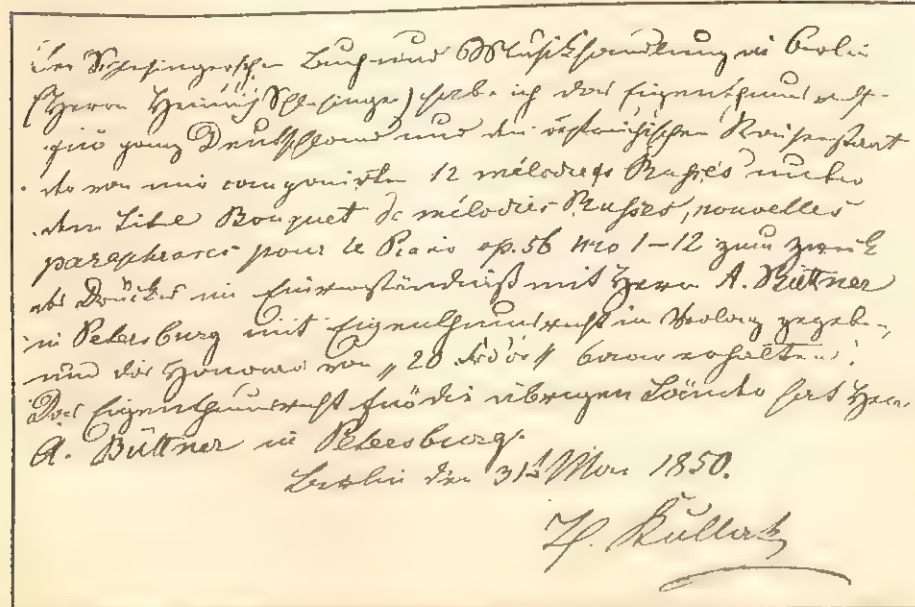 Der Schlesingerschen Buch- und Musikhandlung in Berlin
(Herrn Heinrich Schlesinger) habe ich das Eigenthumsrecht
für ganz Deutschland und den östreichischen Kaiserstaat
der von mir componirten 12 mélodies Russes unter
dem Titel Bouquet de mélodies Russes, nouvelles
paraphrases pour le Piano op. 56 Nro 1–12 zum Zweck
des Druckes im Einverständniß mit Herrn A. Büttner
in Petersburg mit Eigenthumsrecht in Verlag gegeben,
und das Honorar von „20 Frd'or" baar erhalten.
Das Eigenthumsrecht für die übrigen Länder hat Herr
A. Büttner in Petersburg.
Berlin den 31t Mai 1850.
Th. Kullak